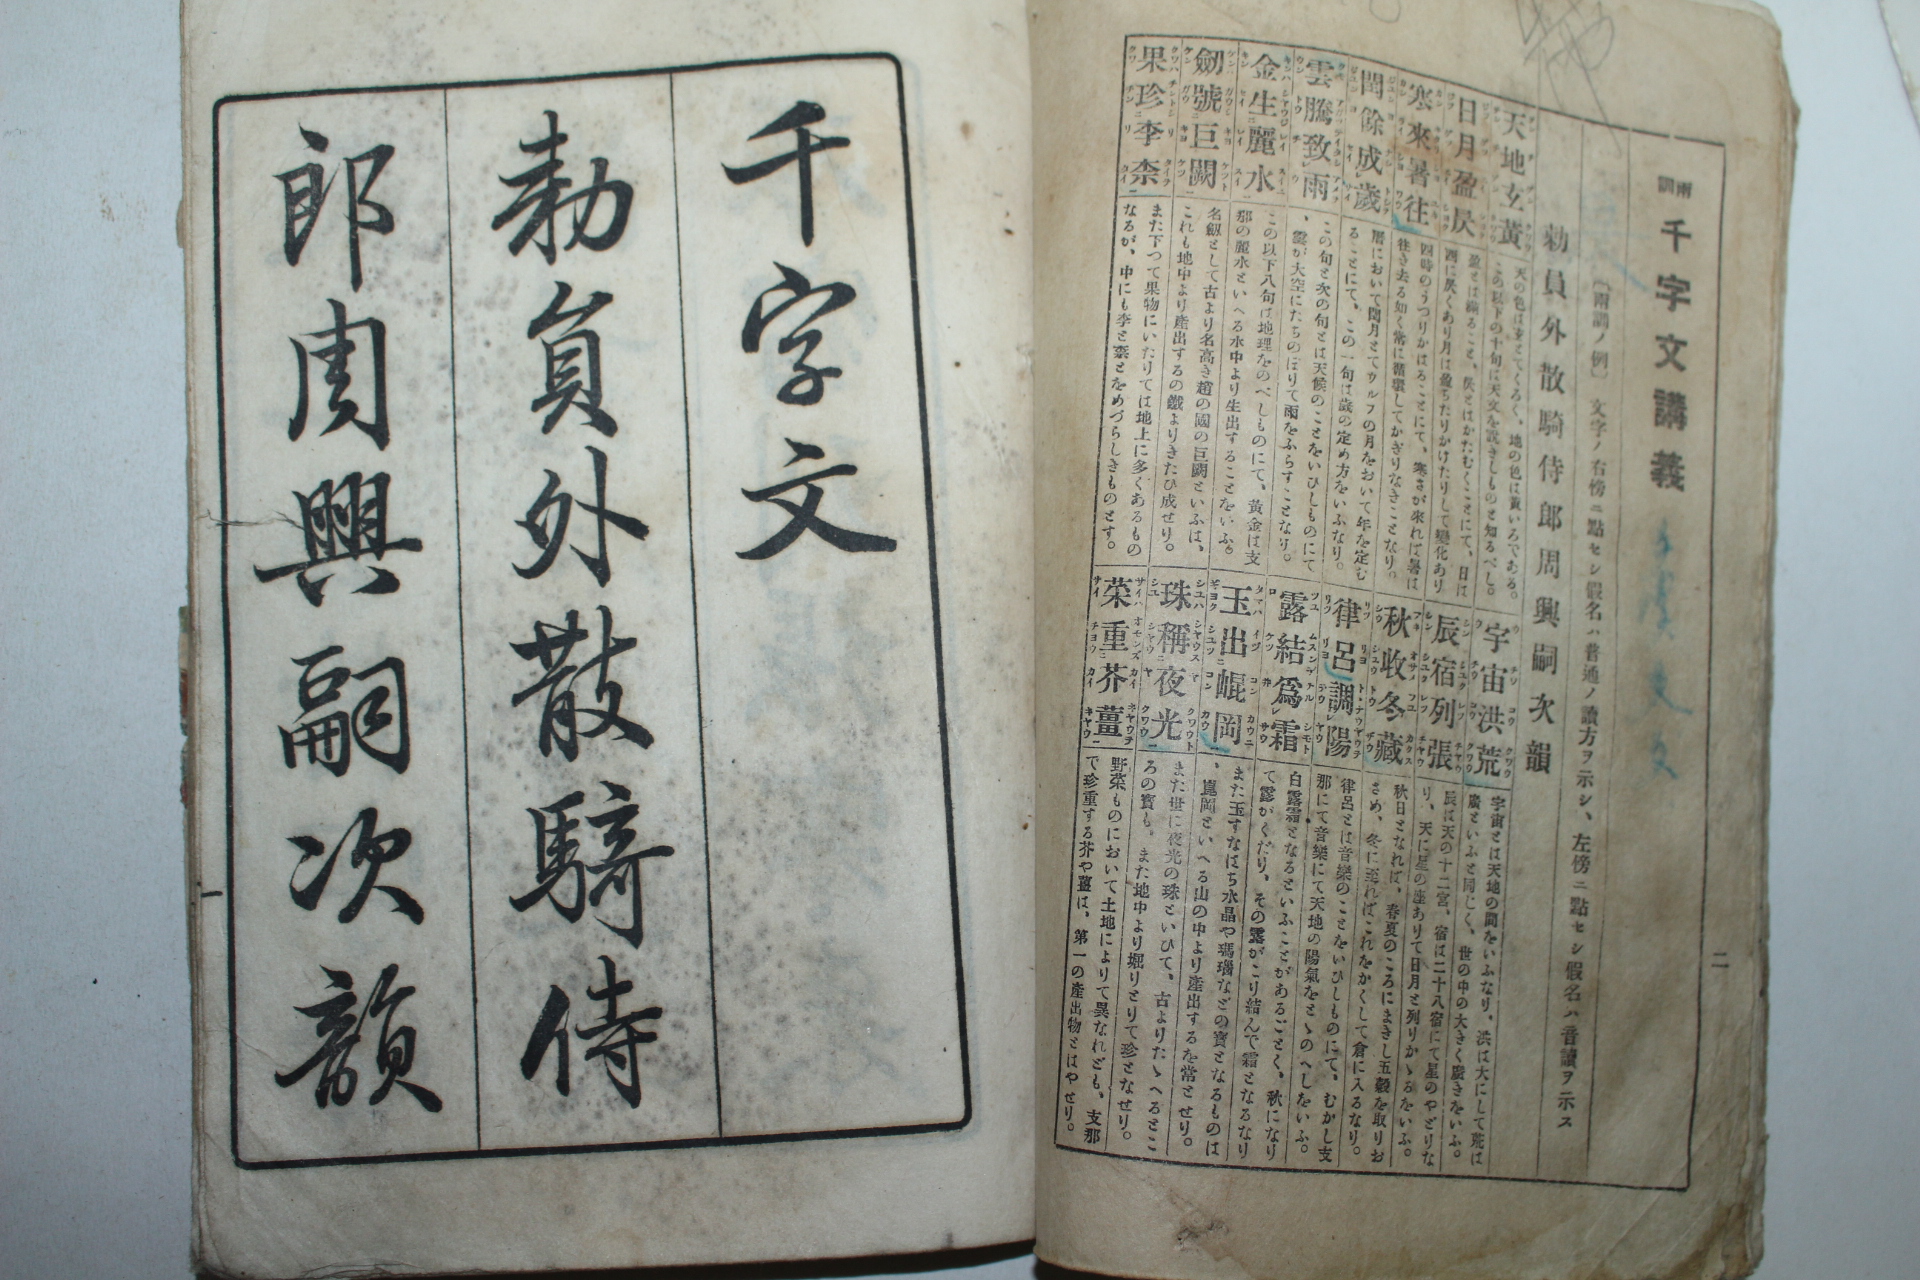 兩訓 千字文講義
〔兩訓ノ例〕 文字ノ右傍ニ點セシ假名ハ普通ノ讀方ヲ示シ、左傍ニ點セシ假名ハ音讀ヲ示ス
勅員外散騎侍郎周興嗣次韻
天地玄黃
天の色は玄とてくろく、地の色は黃いろである。
この以下の十句は天文を說きしものと知るべし。
宇宙洪荒
宇宙とは天地の間をいふなり、洪は大にして荒は
廣といふと同じく、世の中の大きく廣きをいふ。
日月盈昃
盈とは滿ること、昃とはかたむくことにて、日は
西に昃くあり月は盈ちたりかけたりして變化あり
辰宿列張
辰は天の十二宮、宿は二十八宿にて星のやどりな
り、天に星の座ありて日月と列りかゝるをいふ。
寒來暑往
四時のうつりかはることにて、寒さが來れば暑は
往き去る如く常に循環してかぎりなきことなり。
秋收冬藏
秋日となれば、春夏のころにまきし五穀を取りお
さめ、冬に至ればこれをかくして倉に入るなり。
閏餘成歲
曆において閏月とてウルフの月をおいて年を定む
ることにて、この一句は歲の定め方をいふなり。
律呂調陽
律呂とは音樂のことをいひしものにて、むかし支
那にて音樂にて天地の陽氣をとゝのへしをいふ。
雲騰致雨
この句と次の句とは天候のことをいひしものにて
、雲が大空にたちのぼりて雨をふらすことなり。
露結爲霜
白露霜となるといふことがあるごとく、秋になり
て露がくだり、その露がこり結んで霜となるなり
金生麗水
この以下八句は地理をのべしものにて、黃金は支
那の麗水といへる水中より生出することをいふ。
玉出崐岡
また玉すなはち水晶や瑪瑙などの寶となるものは
、崑岡といへる山の中より產出するを常とせり。
劒號巨闕
名劒として古より名高き趙の國の巨闕といふは、
これも地中より產出するの鐵よりきたひ成せり。
珠稱夜光
また世に夜光の珠といひて、古よりたゝへるとこ
ろの寶も、また地中より堀りとりて珍となせり。
果珍李柰
また下つて果物にいたりては地上に多くあるもの
なるが、中にも李と柰とをめづらしきものとす。
菜重芥薑
野菜ものにおいて土地によりて異なれども、支那
で珍重する芥や薑は、第一の產出物とはやせり。
二
千字文
勅員外散騎侍
郎周興嗣次韻